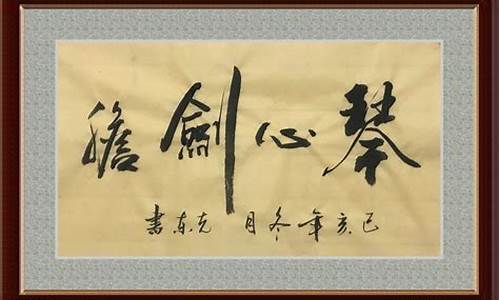 琴心劍膽
己亥年冬月 克东書